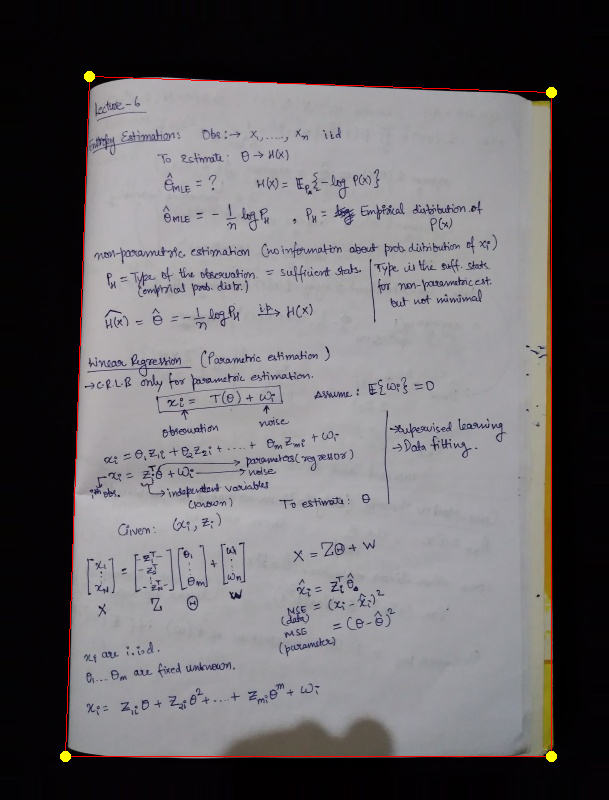 Lecture - 6
Entropy Estimation: Obs: → x₁, ...., xₙ iid
To Estimate: θ → H(x)
θ̂MLE = ? H(x) = 𝔼Pₓ{-log P(x)}
θ̂MLE = - 1/n log P_H , P_H = Empirical distribution of P(x)
non-parametric estimation (no information about prob. distribution of xᵢ)
P_H = Type of the observation = sufficient stats.
(empirical prob. distr.)
Type is the suff. stats
for non-parametric est.
but not minimal
Ĥ(x) = θ̂ = - 1/n log P_H i.p→ H(x)
Linear Regression (Parametric estimation)
→ C.R.L.B only for parametric estimation.
xᵢ = T(θ) + wᵢ Assume: 𝔼{wᵢ} = 0
observation noise
xᵢ = θ₁z₁ᵢ + θ₂z₂ᵢ + .... + θₘzₘᵢ + wᵢ
xᵢ = zᵢᵀθ + wᵢ → parameters (regressor)
→ noise
ith obs. → independent variables
(known)
→ Supervised learning
→ Data fitting.
To estimate: θ
Given: (xᵢ, zᵢ)
[x₁ ⋮ x_N] = [-z₁ᵀ- -z₂ᵀ- ⋮ -z_Nᵀ-] [θ₁ ⋮ θₘ] + [w₁ ⋮ wₙ]
X Z Θ W
X = ZΘ + W
x̂ᵢ = zᵢᵀ θ̂
MSE = (xᵢ - x̂ᵢ)²
(data)
MSE = (θ - θ̂)²
(parameter)
xᵢ are i.i.d.
θ₁...θₘ are fixed unknown.
xᵢ = z₁ᵢθ + z₂ᵢθ² + .... + zₘᵢθᵐ + wᵢ